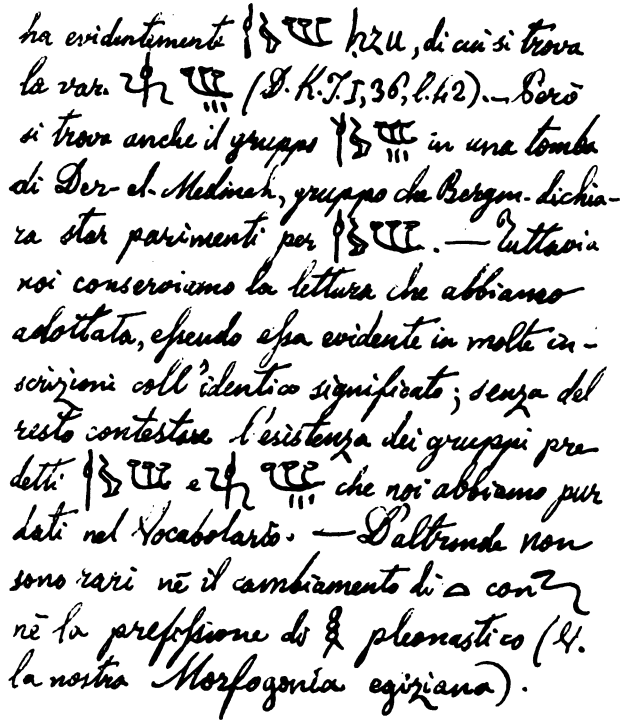 ha evidentemente ḥzu, di cui si trova
la var. (D.K.T.I, 36, l. 42). — Però
si trova anche il gruppo in una tomba
di Der-el-Medineh, gruppo che Bergm. dichia-
ra star parimenti per . — Tuttavia
noi conserviamo la lettura che abbiamo
adottata, eſsendo eſsa evidente in molte in-
scrizioni coll'identico significato; senza del
resto contestare l'esistenza dei gruppi pre
detti e che noi abbiamo pur
dati nel Vocabolario. — D'altronde non
sono rari nè il cambiamento di con
nè la prefiſsione di pleonastico (V.
la nostra Morfogonia egiziana).